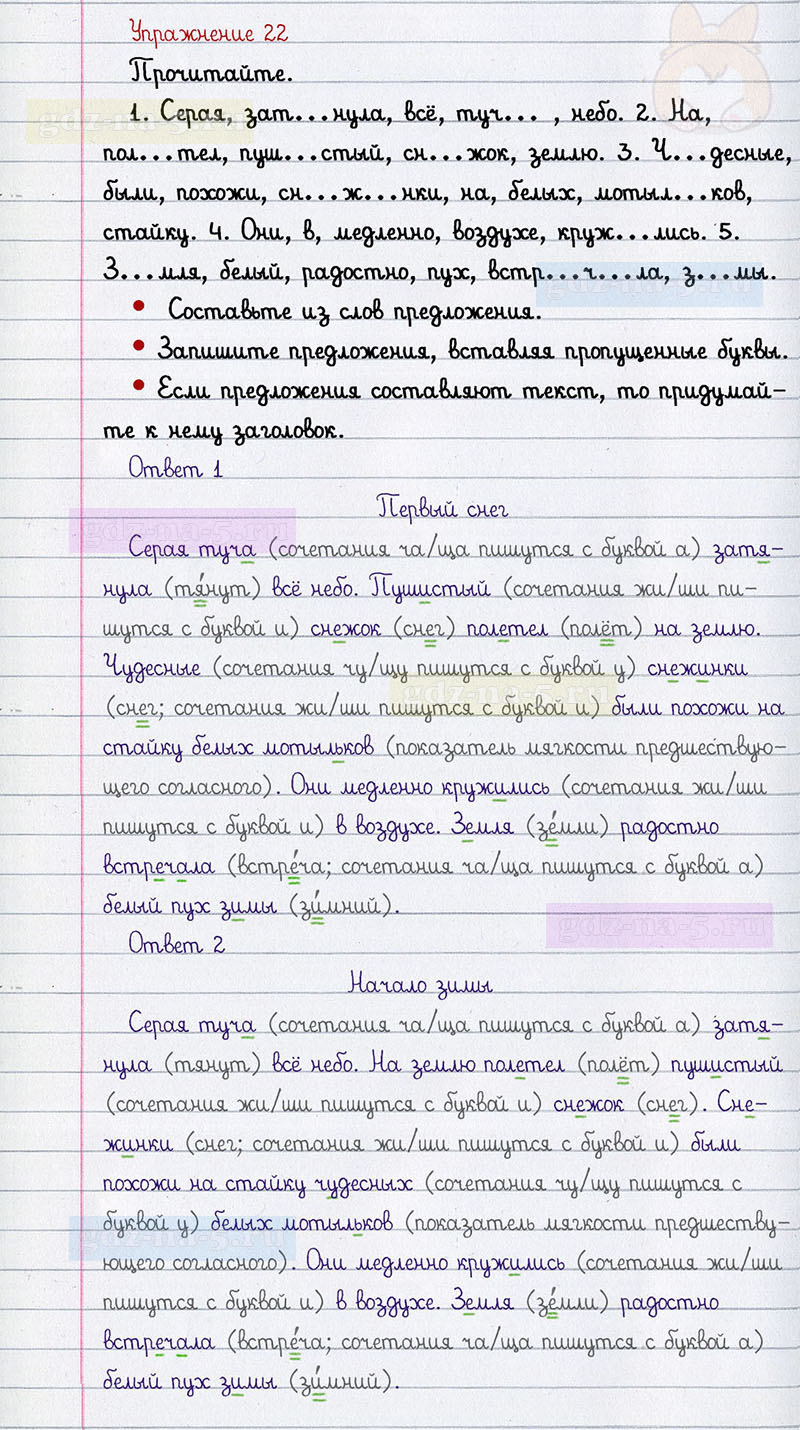 Упражнение 22
Прочитайте.
1. Серая, зат...нула, всё, туч... , небо. 2. На,
gdz-na-5.ru
пол...тел, пуш...стый, сн...жок, землю. 3. Ч...десные,
были, похожи, сн...ж...нки, на, белых, мотыл...ков,
стайку. 4. Они, в, медленно, воздухе, круж...лись. 5.
З...мля, белый, радостно, пух, встр...ч...ла, з...мы.
gdz-na-5.ru
• Составьте из слов предложения.
• Запишите предложения, вставляя пропущенные буквы.
• Если предложения составляют текст, то придумай-
те к нему заголовок.
Ответ 1
Первый снег
gdz-na-5.ru
Серая туча (сочетания ча/ща пишутся с буквой а) затя-
нула (тя́нут) всё небо. Пушистый (сочетания жи/ши пи-
шутся с буквой и) снежок (снег) полетел (полёт) на землю.
Чудесные (сочетания чу/щу пишутся с буквой у) снежинки
gdz-na-5.ru
(снег; сочетания жи/ши пишутся с буквой и) были похожи на
стайку белых мотыльков (показатель мягкости предшествую-
щего согласного). Они медленно кружились (сочетания жи/ши
пишутся с буквой и) в воздухе. Земля (зе́мли) радостно
встречала (встре́ча; сочетания ча/ща пишутся с буквой а)
белый пух зимы (зи́мний).
gdz-na-5.ru
Ответ 2
Начало зимы
Серая туча (сочетания ча/ща пишутся с буквой а) затя-
нула (тянут) всё небо. На землю полетел (полёт) пушистый
(сочетания жи/ши пишутся с буквой и) снежок (снег). Сне-
жинки (снег; сочетания жи/ши пишутся с буквой и) были
похожи на стайку чудесных (сочетания чу/щу пишутся с
буквой у) белых мотыльков (показатель мягкости предшеству-
gdz-na-5.ru
ющего согласного). Они медленно кружились (сочетания жи/ши
пишутся с буквой и) в воздухе. Земля (зе́мли) радостно
встречала (встре́ча; сочетания ча/ща пишутся с буквой а)
белый пух зимы (зи́мний).